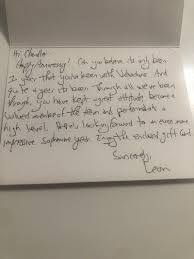 Hi Chandler
Happy Anniversary! Can you believe its only been
1 year that you've been with Velvature. And
quite a year its been. Through all we've been
through, you have kept a great attitude, become a
valued member of the team and performed at a
high level. looking forward to an even more
impressive Sophomore year. Enjoy the enclosed gift card
Sincerely,
Leon